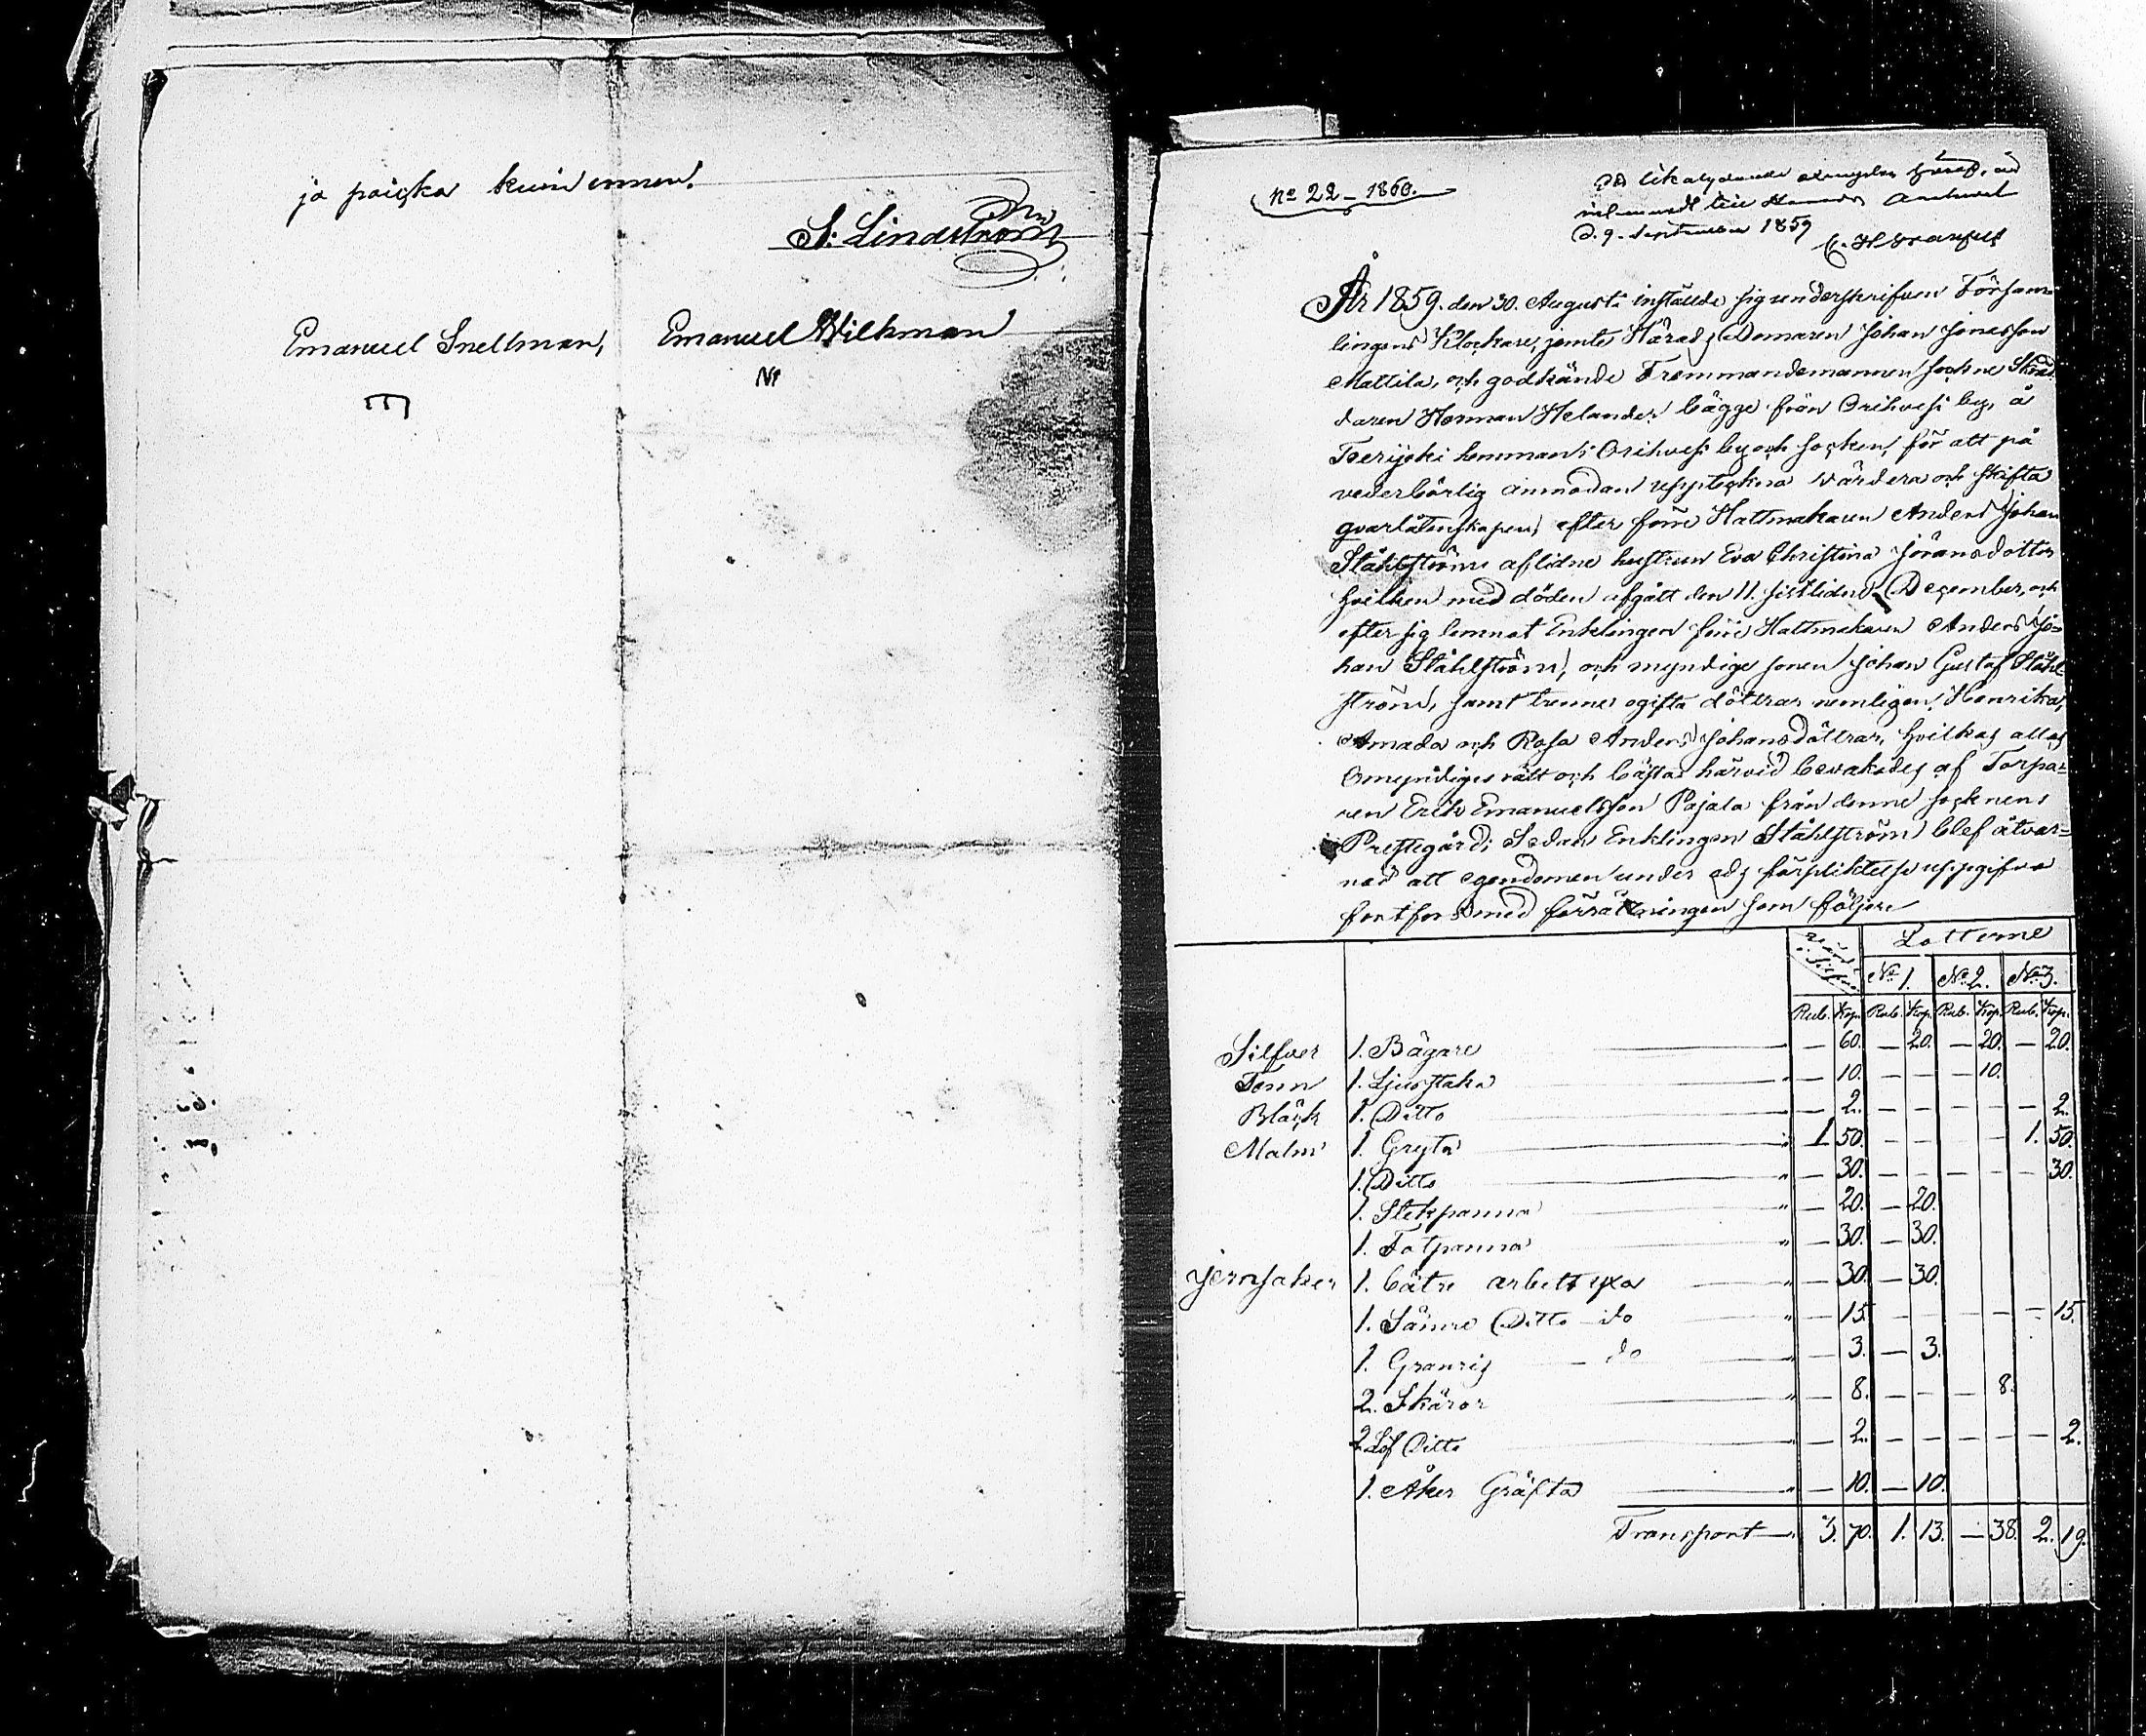 ja paicka kuin ennen.
S. Lindström
Emanuel Snellman, Emanuel Wilkman
No 22 – 1860.
likalydande
till Härads
d. 9. September 1859
År 1859. den 30. Augusti instälde sig underskrifven Försam-
lingens Klockare, jemte Härads Domaren Johan Jonasson
Mattila, och godkände Tremmandemannen Sockne Skräd-
daren Herman Helander bägge från Orihvesi by, å
Teerijoki hemman i Orihvesi by och Socken, för att på
vederbörlig anmodan uppteckna värdera och skifta
qvarlåtenskapen efter förre Hattmakaren Anders Johan
Ståhlströms aflidne hustrun Eva Christina Jöransdotter
hvilken med döden afgått den 11. sistlidne December, och
efter sig lemnat Enklingen förre Hattmakaren Anders Jo-
han Ståhlström, och myndige sonen Johan Gustaf Ståhl-
ström, samt trenne ogifta döttrar nemligen, Henrika,
Amada och Rosa Anders Johansdöttrar, hvilkas allas
Omyndiges rätt och bästa härvid bevakades af Torpa-
ren Erik Emanuelsson Pajala från denne socknens
Prestegård; Sedan Enklingen Ståhlström blef åtvar-
nad att egendomen under eds förpliktelse uppgifva
fortfors med förrättningen som följer
Lotterne
No 1. No 2. No 3.
Rub. Kop. Rub. Kop. Rub. Kop. Rub. Kop.
Silfver 1. Bägare — 60. — 20. — 20. — 20.
Tenn 1. Ljusstaka " — 10. — — — 10.
Bläck 1. Ditto " — 2. — — — — — 2.
Malm 1. Gryta " 1. 50. — — — — 1. 50.
1. Ditto " — 30. — — — — — 30.
1. Stekpanna " — 20. — 20.
1. Fatpanna " — 30. — 30.
Jernsaker 1. bätre arbets yxa " — 30. — 30.
1. Sämre Ditto do " — 15. — — — — — 15.
1. Granris do " — 3. — 3.
2. Skäror " — 8. — — — 8.
2. Löf Ditto " — 2. — — — — — 2.
1. Åker Gräfta " — 10. — 10.
Transport " 3. 70. 1. 13. — 38. 2. 19.